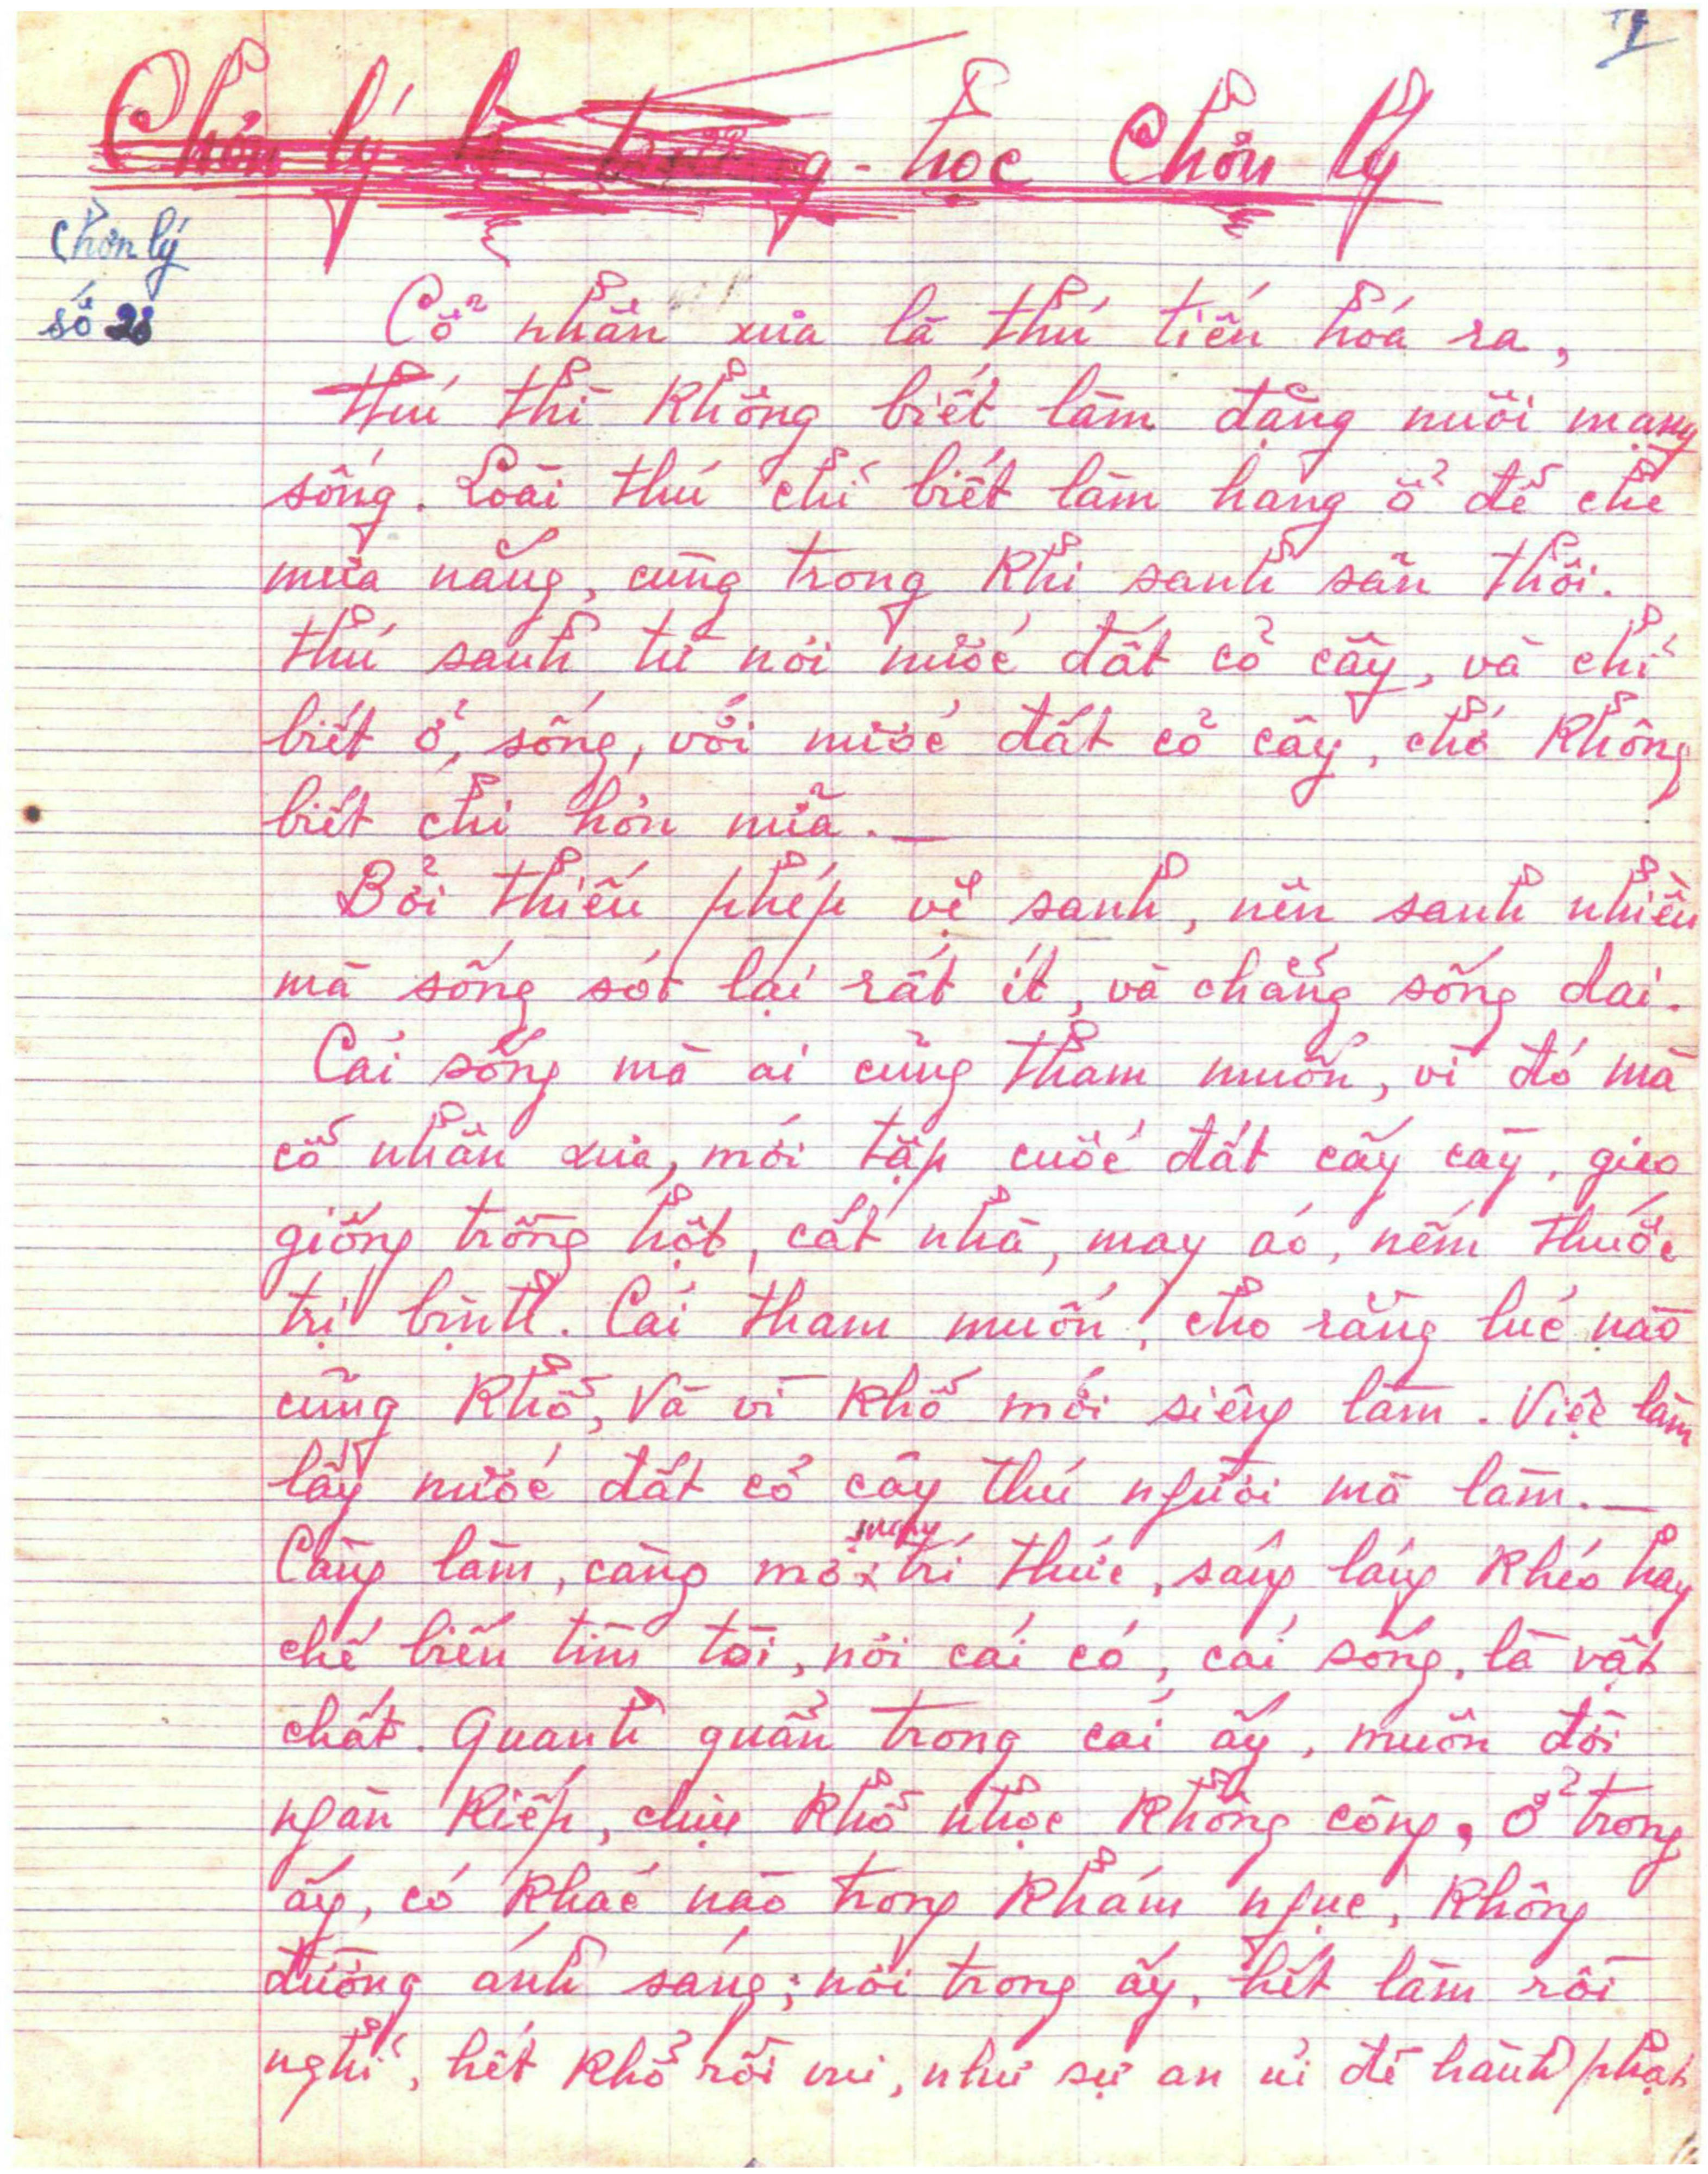 I
Chơn lý - học Chơn lý
Chơn lý
số 28
Cổ nhân xưa là thú tiến hóa ra,
thú thì không biết làm đặng nuôi mạng
sống. Loài thú chỉ biết làm hang ổ để che
mưa nắng, cùng trong khi sanh sản thôi.
thú sanh từ nơi nước đất cỏ cây, và chỉ
biết ở, sống, với nước đất cỏ cây, chớ không
biết chi hơn nữa._
Bởi thiếu phép vệ sanh, nên sanh nhiều
mà sống sót lại rất ít, và chẳng sống dai.
Cái sống mà ai cũng tham muốn, vì đó mà
cổ nhân xưa, mới tập cuốc đất cấy cày, gieo
giống trồng hột, cất nhà, may áo, nếm thuốc
trị bịnh. Cái tham muốn, cho rằng lúc nào
cũng khổ, Và vì khổ mới siêng làm. Việc làm
lấy nước đất cỏ cây thú người mà làm._
may
Càng làm, càng mở x trí thức, sáng láng khéo hay
chế biến tìm tòi, nơi cái có, cái sống, là vật
chất. Quanh quẩn trong cái ấy, muôn đời
ngàn kiếp, chịu khổ nhọc không công, ở trong
ấy, có khác nào trong khám ngục, không
đường ánh sáng; nơi trong ấy, hết làm rồi
nghỉ, hết khổ rồi vui, như sự an ủi để hành phạt